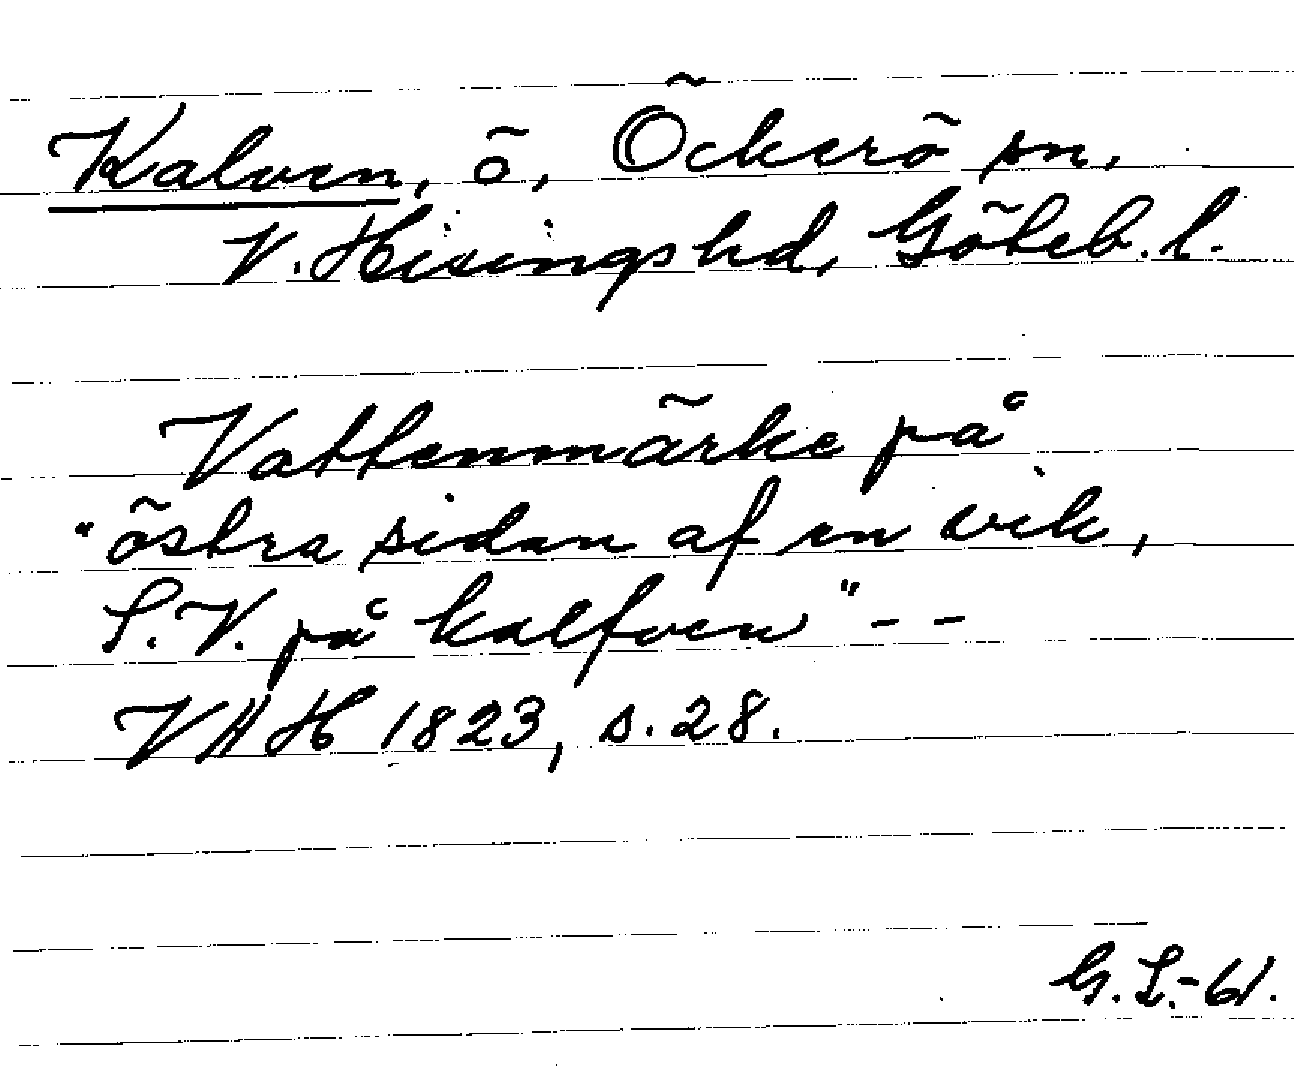 Kalven, ö, Öckerö sn,
V. Hisings hd, Göteb. l.
Vattenmärke på
"östra sidan af en vik,
S.V. på kalfven" --
VAH 1823, s. 28.
G. L. -61.